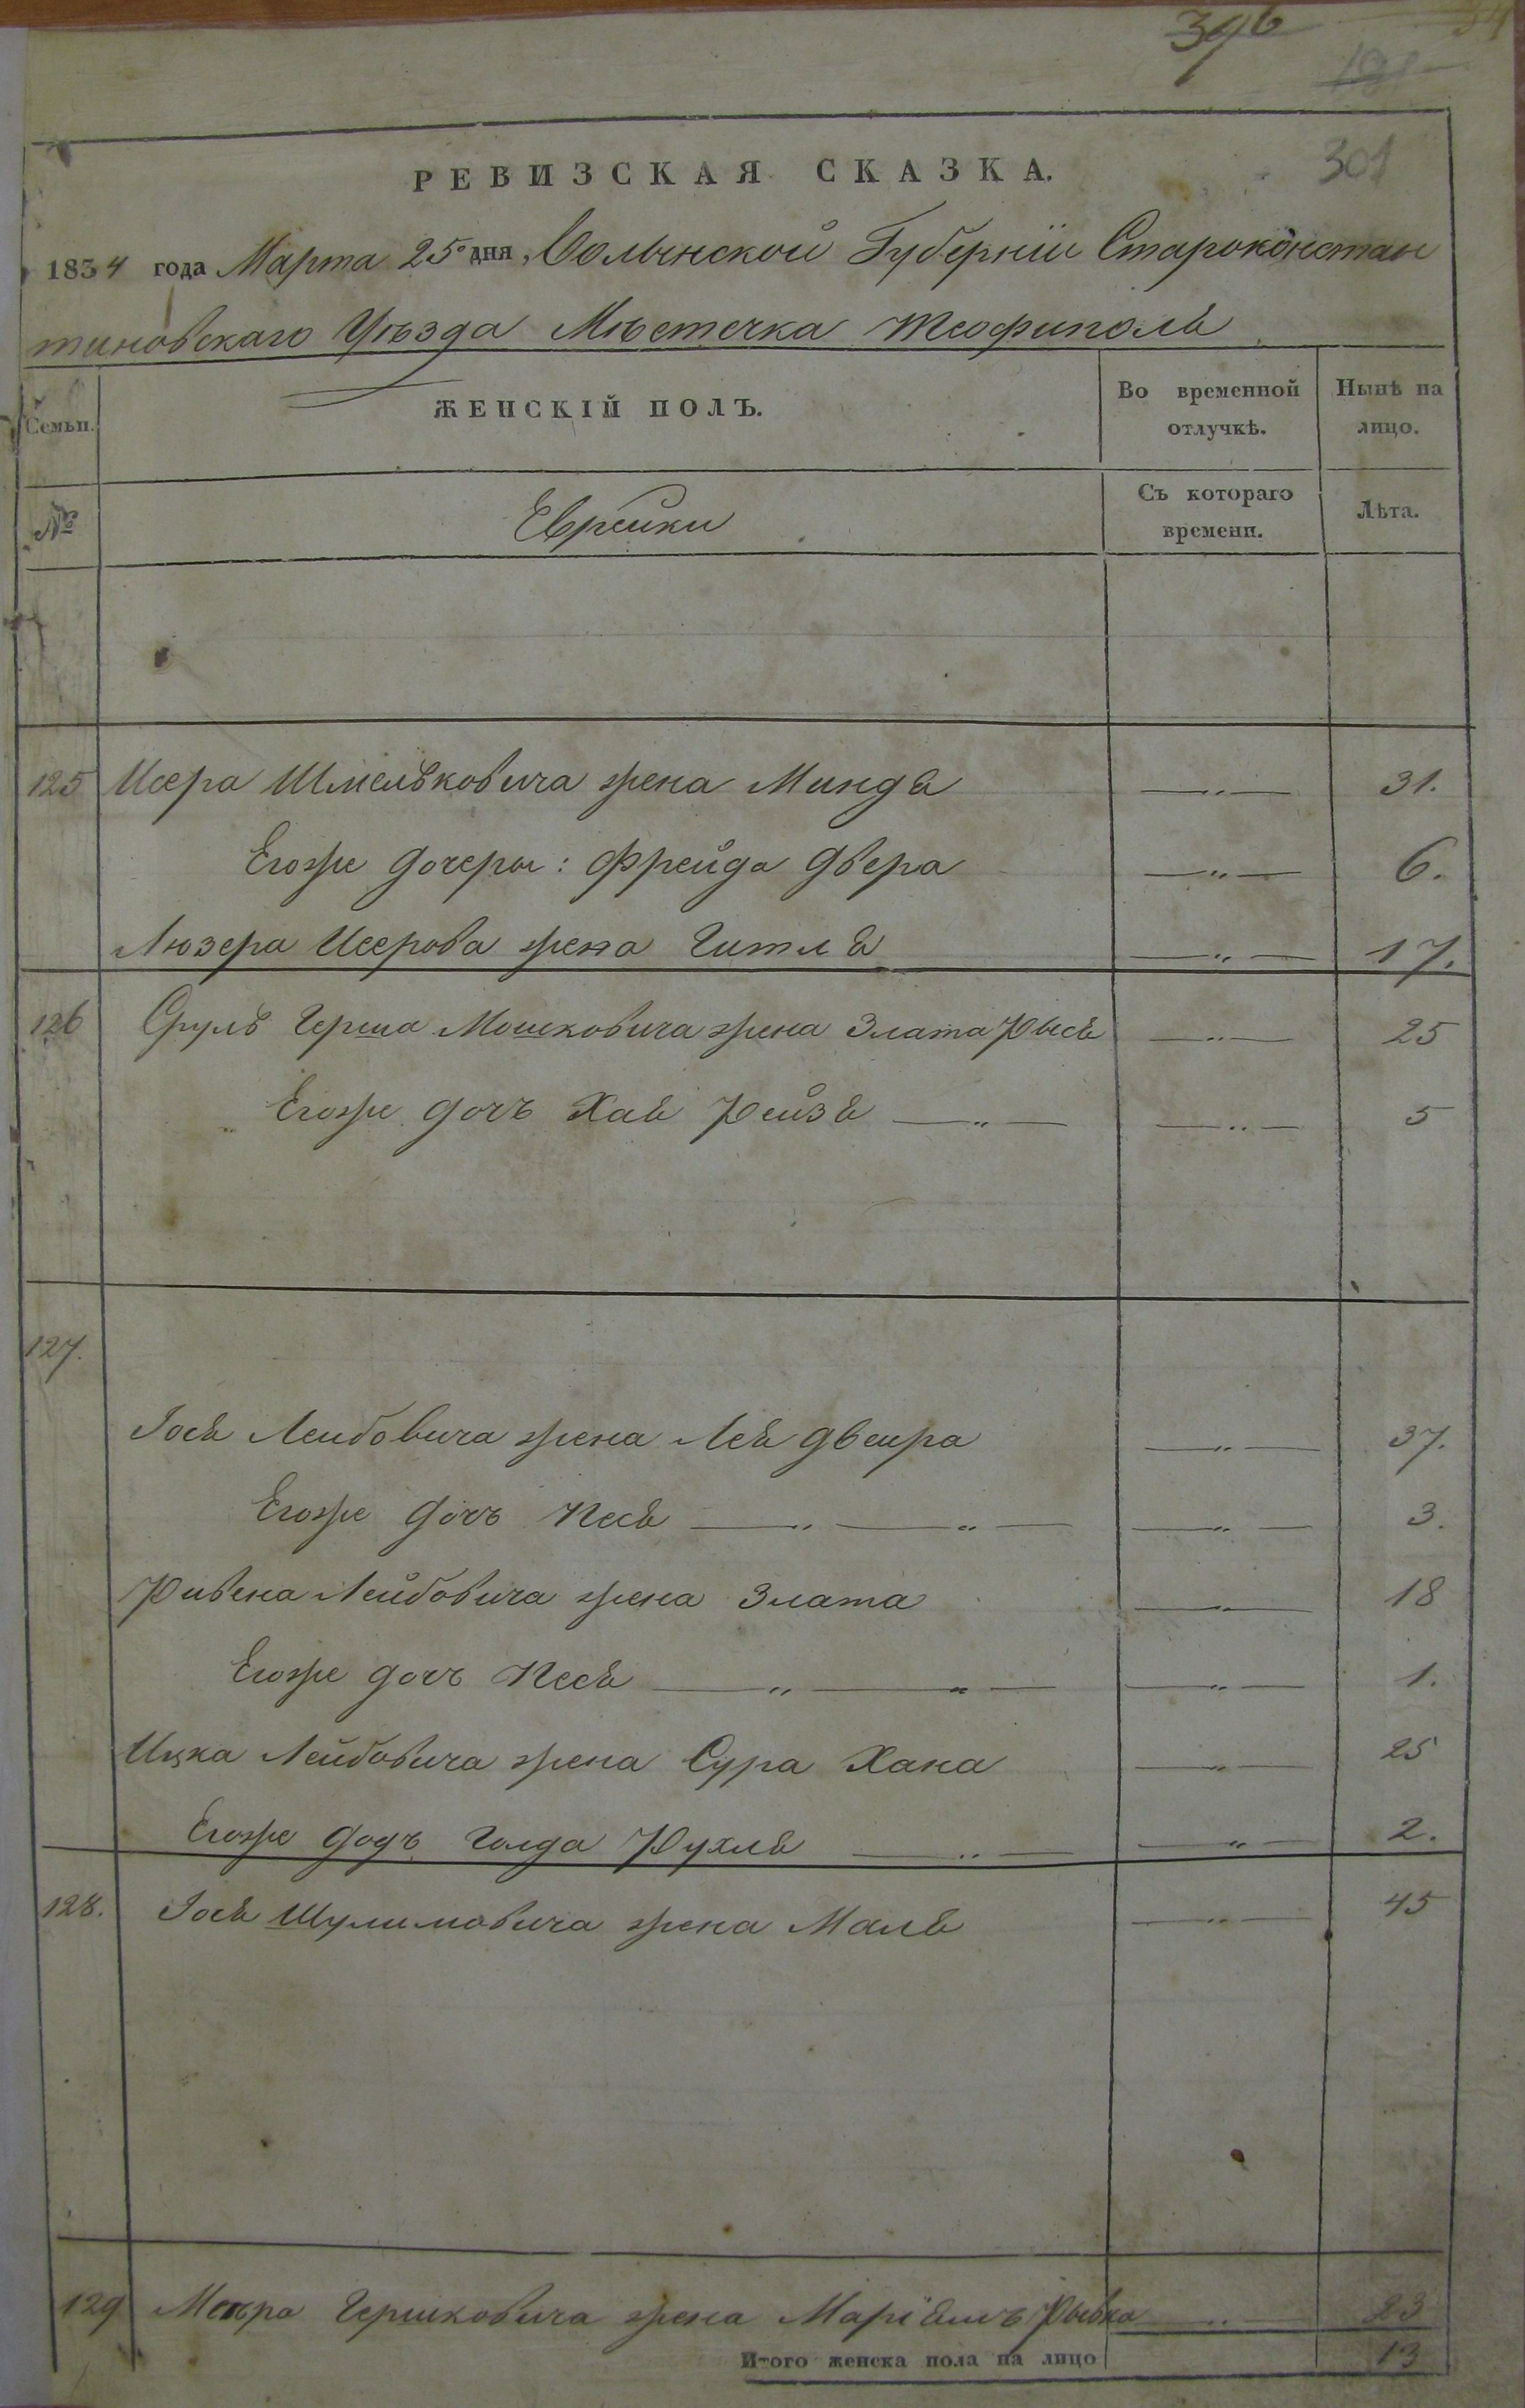 396
301
РЕВИЗСКАЯ СКАЗКА.
1834 года Марта 25 дня, Волынской Губерніи Староконстан
тиновскаго Уѣзда Мѣстечка Теофиполя
Семьи. ЖЕНСКІЙ ПОЛЪ. Во временной отлучкѣ. Нынѣ на лицо.
№ Еврейки Съ котораго времени. Лѣта.
125 Исера Шмельковича жена Миндя —„— 31.
Егоже дочеры: Фрейда Двера —„— 6.
Люзера Исерова жена Гитля —„— 17.
126 Сруль Герша Мошковича жена Злата Рыся —„— 25
Егоже дочь Хая Рейзя —„— —„— 5
127.
Іося Лейбовича жена Лея Двейра —„— 37.
Егоже дочь Песя —„— —„— —„— 3.
Ривена Лейбовича жена Злата —„— 18
Егоже дочь Песя —„— —„— —„— 1.
Ицка Лейбовича жена Сура Хана —„— 25
Егоже дочъ Голда Рухля —„— —„— 2.
128. Іося Шулимовича жена Маля —„— 45
129 Меера Гершковича жена Маріямъ Рывка —„— 23
Итого женска пола на лицо 13